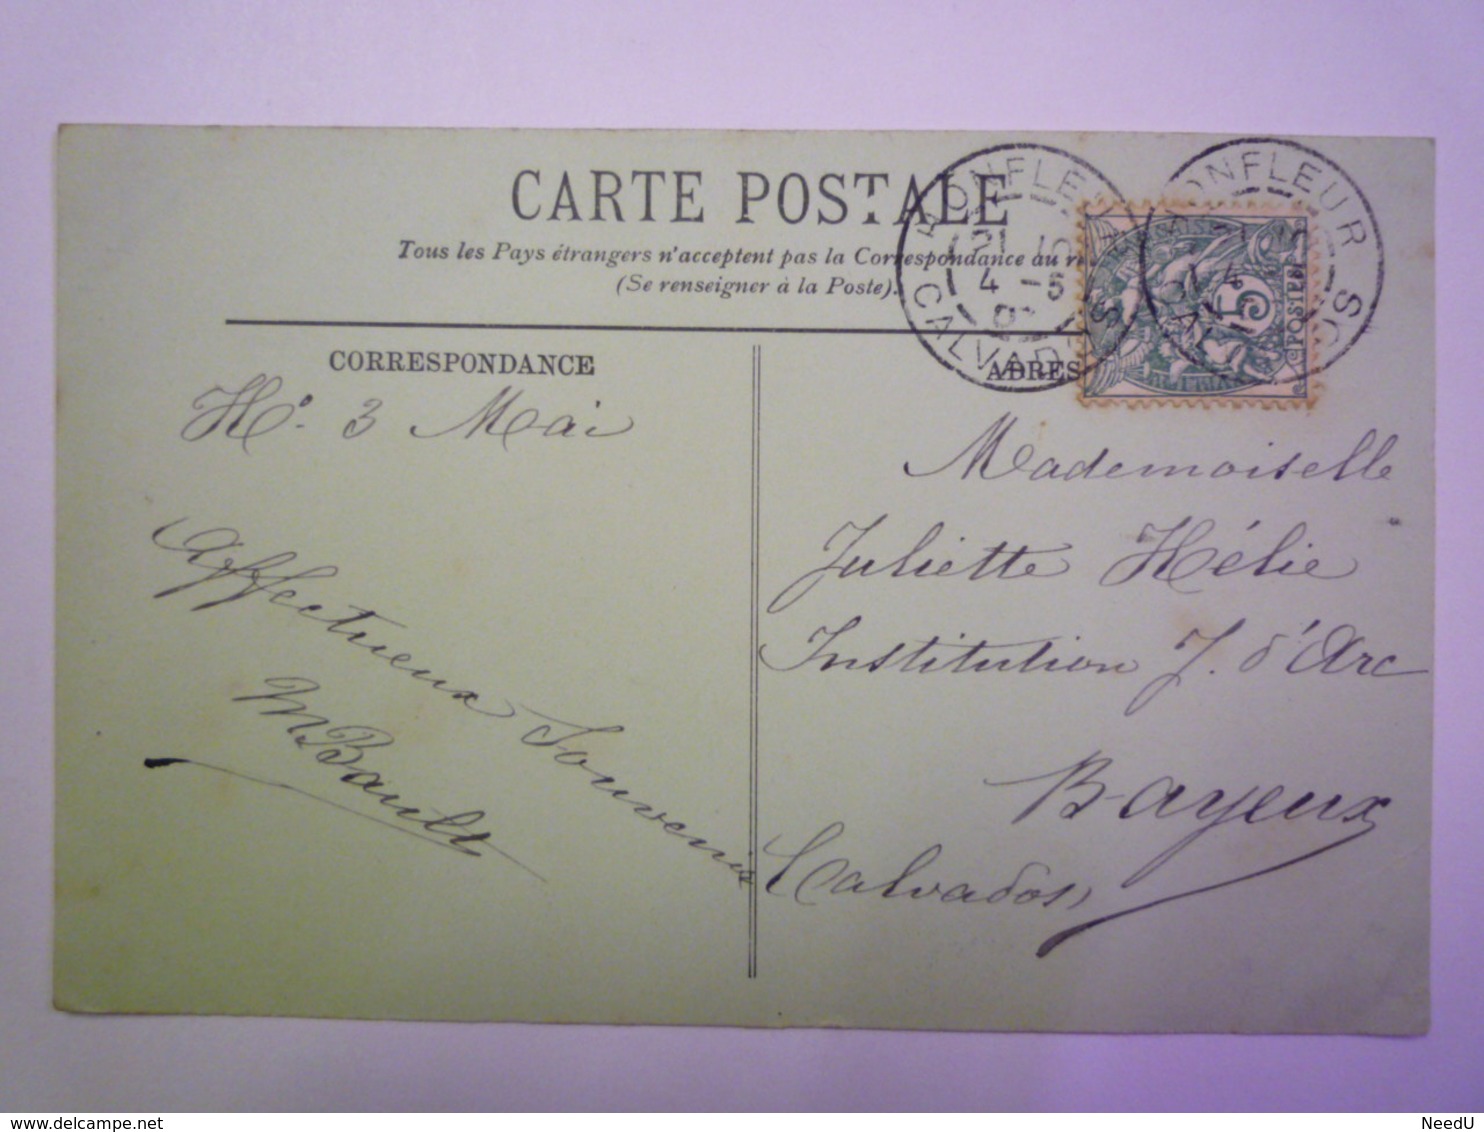 CARTE POSTALE
Tous les Pays étrangers n'acceptent pas la Correspondance au
(Se renseigner à la Poste).
HONFLEUR
21 10
4 -5
CALVADOS
HONFLEUR
5
POSTES
CORRESPONDANCE
ADRES
H. 3 Mai
Affectueux Souvenir
MBault
Mademoiselle
Juliette Hélie
Institution J. d'Arc
Bayeux
Calvados
NeedU